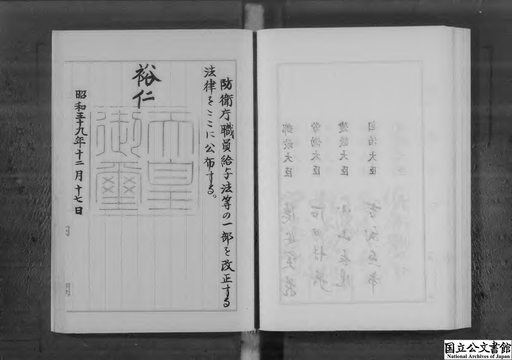 防衛庁職員給与法等の一部を改正する
法律をここに公布する。
裕仁
天皇
御璽
昭和三十九年十二月十七日
自治大臣
建設大臣
労働大臣
郵政大臣
国立公文書館
National Archives of Japan